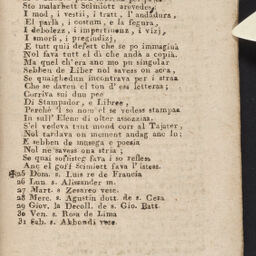 Sto malarbett Scimiott arevedel
I mod, i vestii, i tratt, l' andadura,
El parlà, i costum, e la fegura,
I debolezz, i impertinenz, i vizj,
I smorfi, i pregiudizj,
E tutt quii defett che se po immaginà
Nol fava tutt el dì che andà a copià.
Ma quel ch'era anc mo pu singolar
Sebben de Liber nol savess on aca,
Se quaighedun incontrava per i straa
Che se daven el ton d' ess letteraa;
Corriva sui duu pee
Di Stampador, e Libree,
Perchè 'l so nom el se vedess stampaa
In sull' Elenc di olter assozziaa.
S'el vedeva tant mond corr al Tajater,
Nol tardava on moment andag anc lu:
E sebben de musega e poesia
Nol ne savess ona stria;
Se quai sorfister fava i so refless
Anc el goff Scimiott fava l'istess.
✠25 Dom. s. Luis re de Francia
26 Lun. s. Alissander m.
27 Mart. s Zesareo vesc.
28 Merc. s. Agustin dott. de s. Gesa
29 Giov. la Decoll. de s. Gio. Batt
30 Ven. s Rosa de Lima
31 Sab. s. Abbondi vesc.